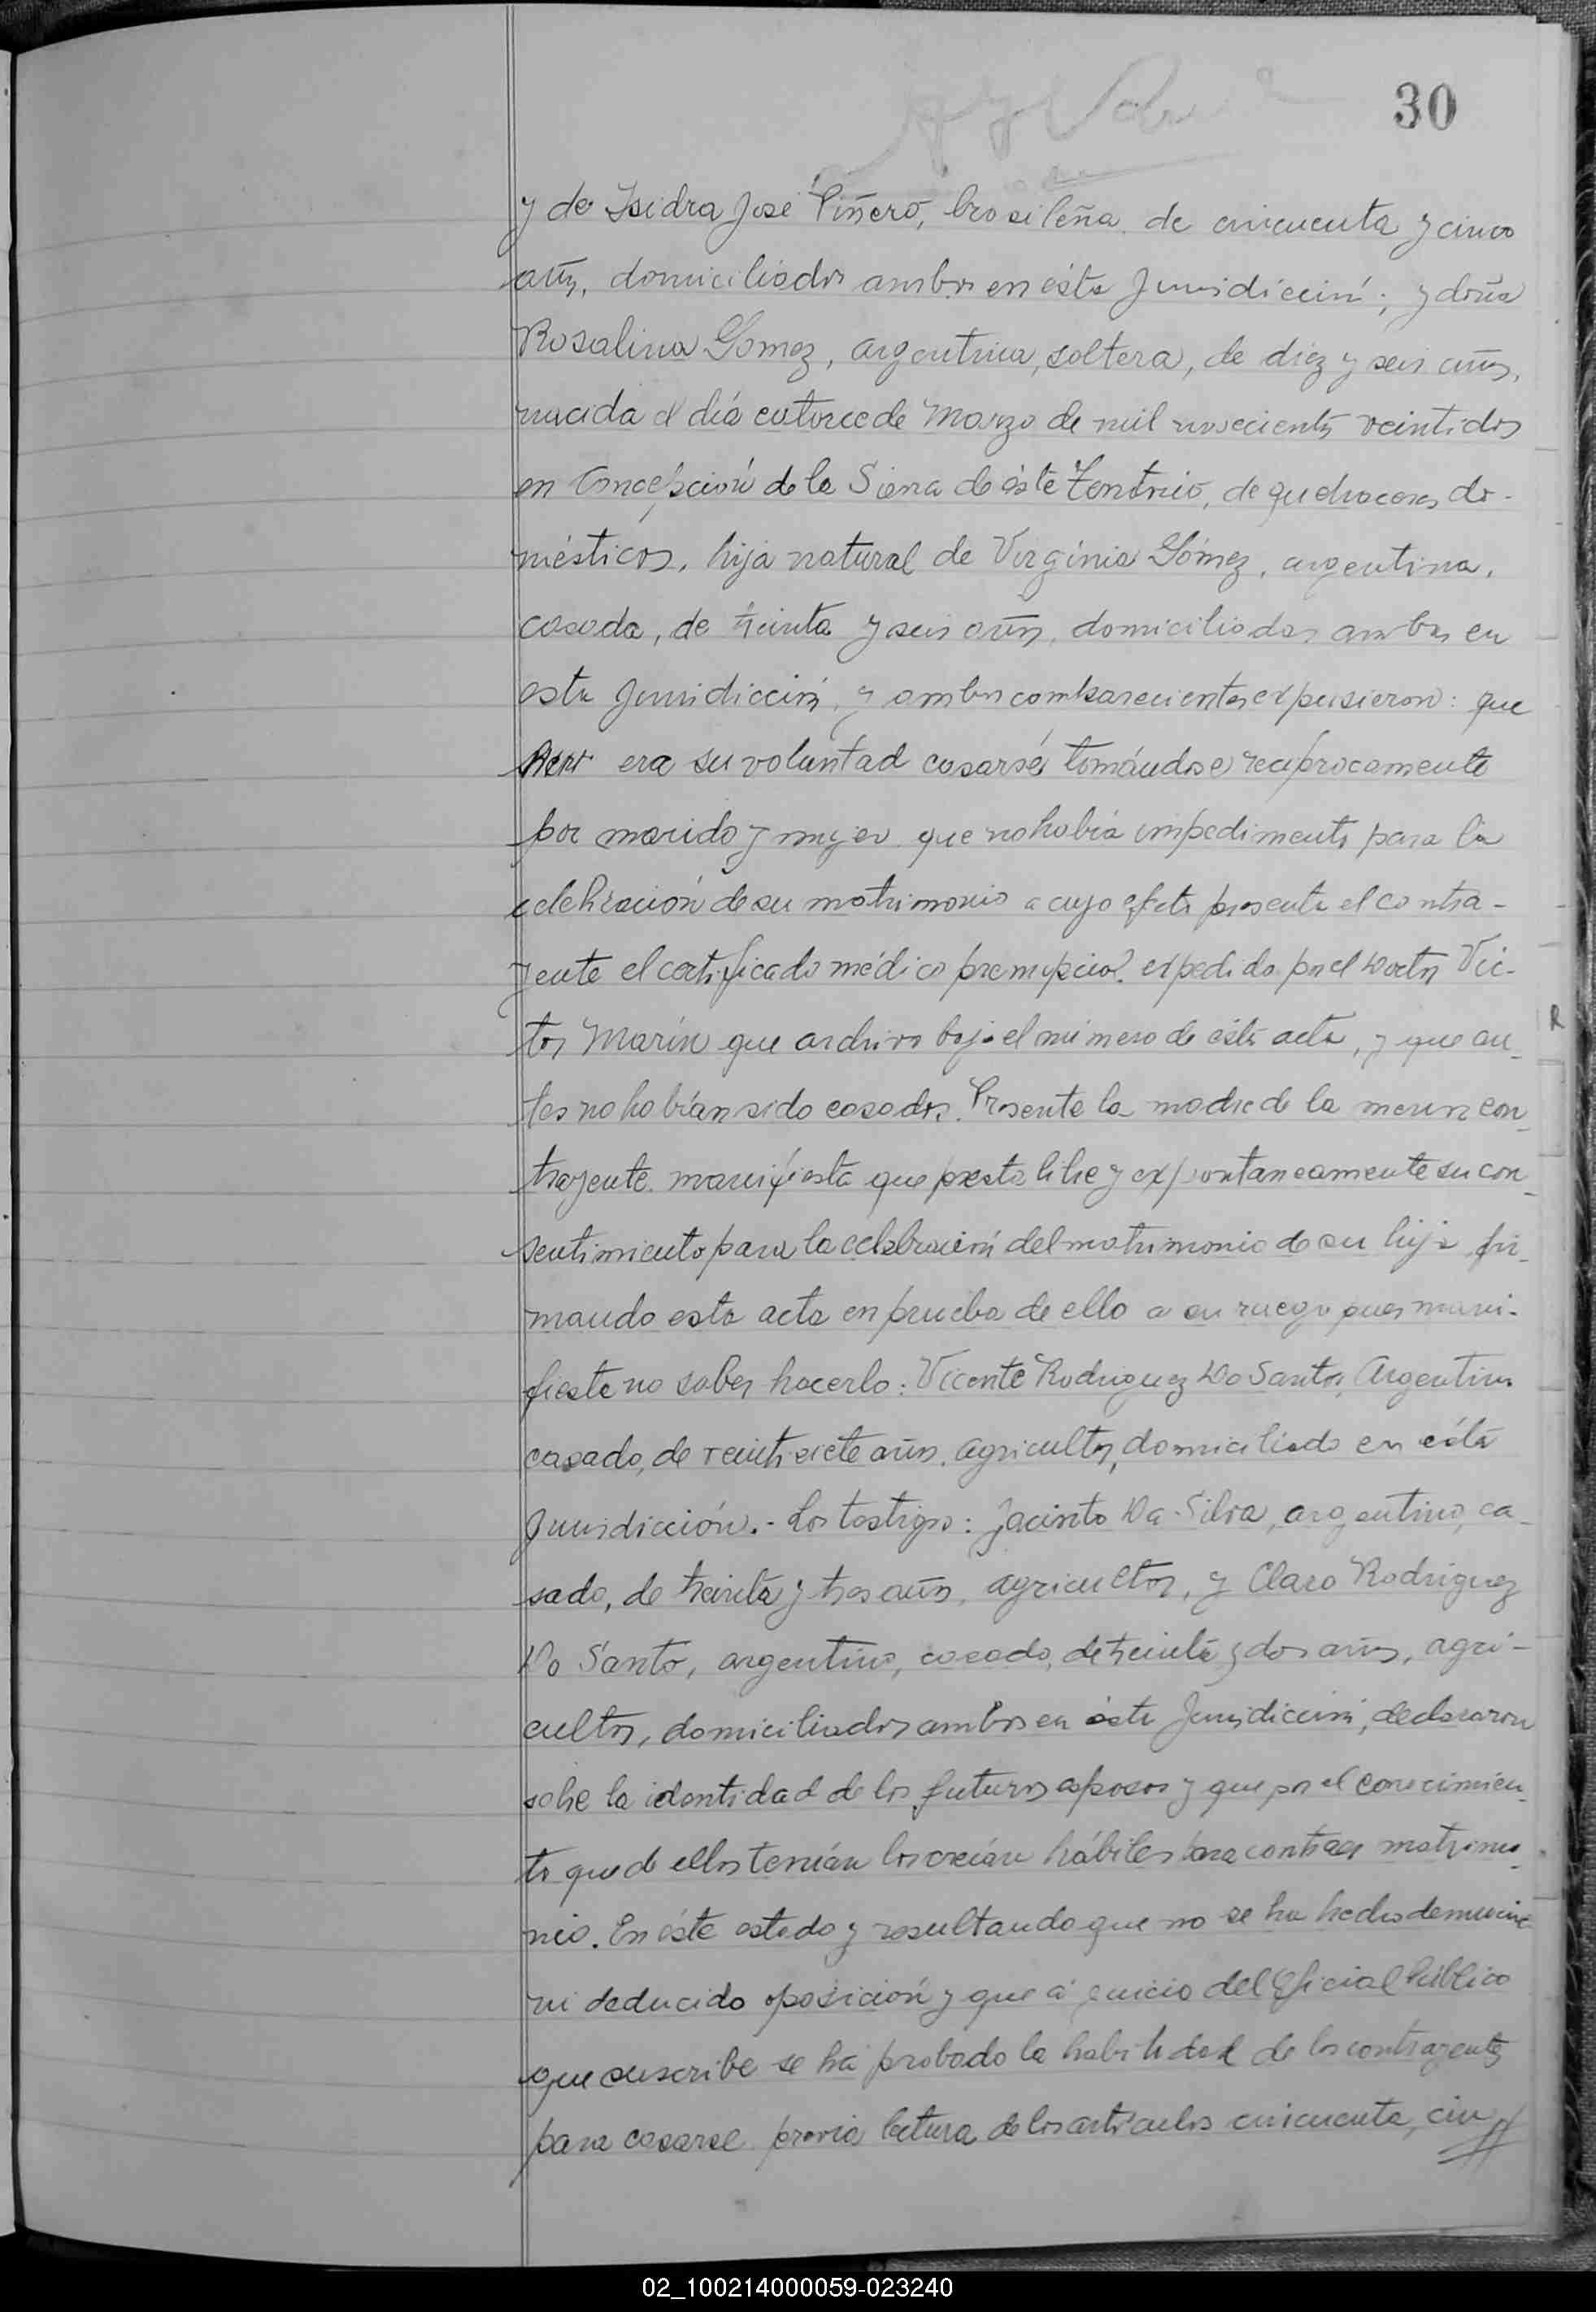 30
y de Isidra José Piñero, brasileña de cincuenta y cinco
años, domiciliados ambos en ésta Jurisdicción; y doña
Rosalina Gomez, argentina, soltera, de diez y seis años,
nacida el día catorce de Marzo de mil novecientos veintidos
en Concepción de la Sierra de éste Territorio, de quehaceres do-
mésticos, hija natural de Virginia Gómez, argentina,
casada, de treinta y seis años, domiciliadas ambas en
esta Jurisdicción, y ambos comparecientes expusieron: que
era su voluntad casarse tomándose reciprocamente
por marido y mujer que no había impedimento para la
celebración de su matrimonio a cuyo efecto presenta el contra-
yente el certificado médico prenupcial expedido por el Doctor Vic-
tor Marín que archivo bajo el número de ésta acta, y que an-
tes no habían sido casados. Presente la madre de la menor con-
trayente manifiesta que presta libre y expontaneamente su con-
sentimiento para la celebración del matrimonio de su hija fir-
mando esta acta en prueba de ello a su ruego pues mani-
fiesta no saber hacerlo: Vicente Rodriguez Do Santos, Argentino
casado, de veintisiete años, agricultor, domiciliado en ésta
Jurisdicción.- Los testigos: Jacinto Da Silva, argentino, ca-
sado, de treinta y tres años, agricultor, y Claro Rodriguez
Do Santo, argentino, casado, de treinta y dos años, agri-
cultor, domiciliados ambos en ésta Jurisdicción, declararon
sobre la identidad de los futuros esposos y que por el conocimien-
to que de ellos tenían los creían hábiles para contraer matrimo-
nio. En éste estado y resultando que no se ha hecho denuncia
ni deducido oposición y que á juicio del Oficial Público
que suscribe se ha probado la habilidad de los contrayentes
para casarse previa lectura de los artículos cincuenta, cin
R
02_100214000059-023240